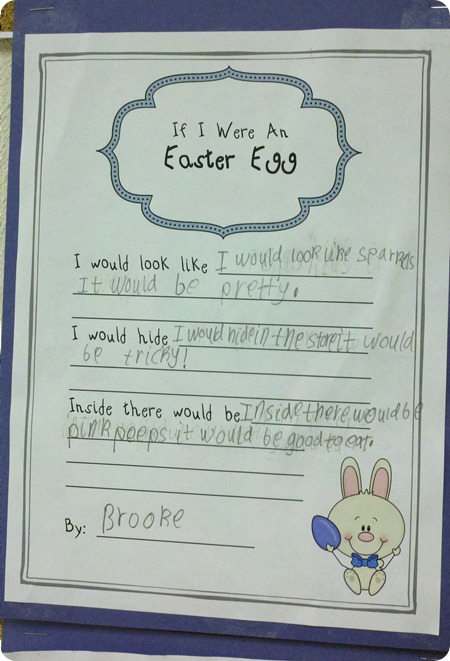 If I Were An
Easter Egg
I would look like I would look like sparkels
It would be pretty.
I would hide I would hide in the store it would
be tricky!
Inside there would be Inside there would be
pink peeps it would be good to eat.
By: Brooke